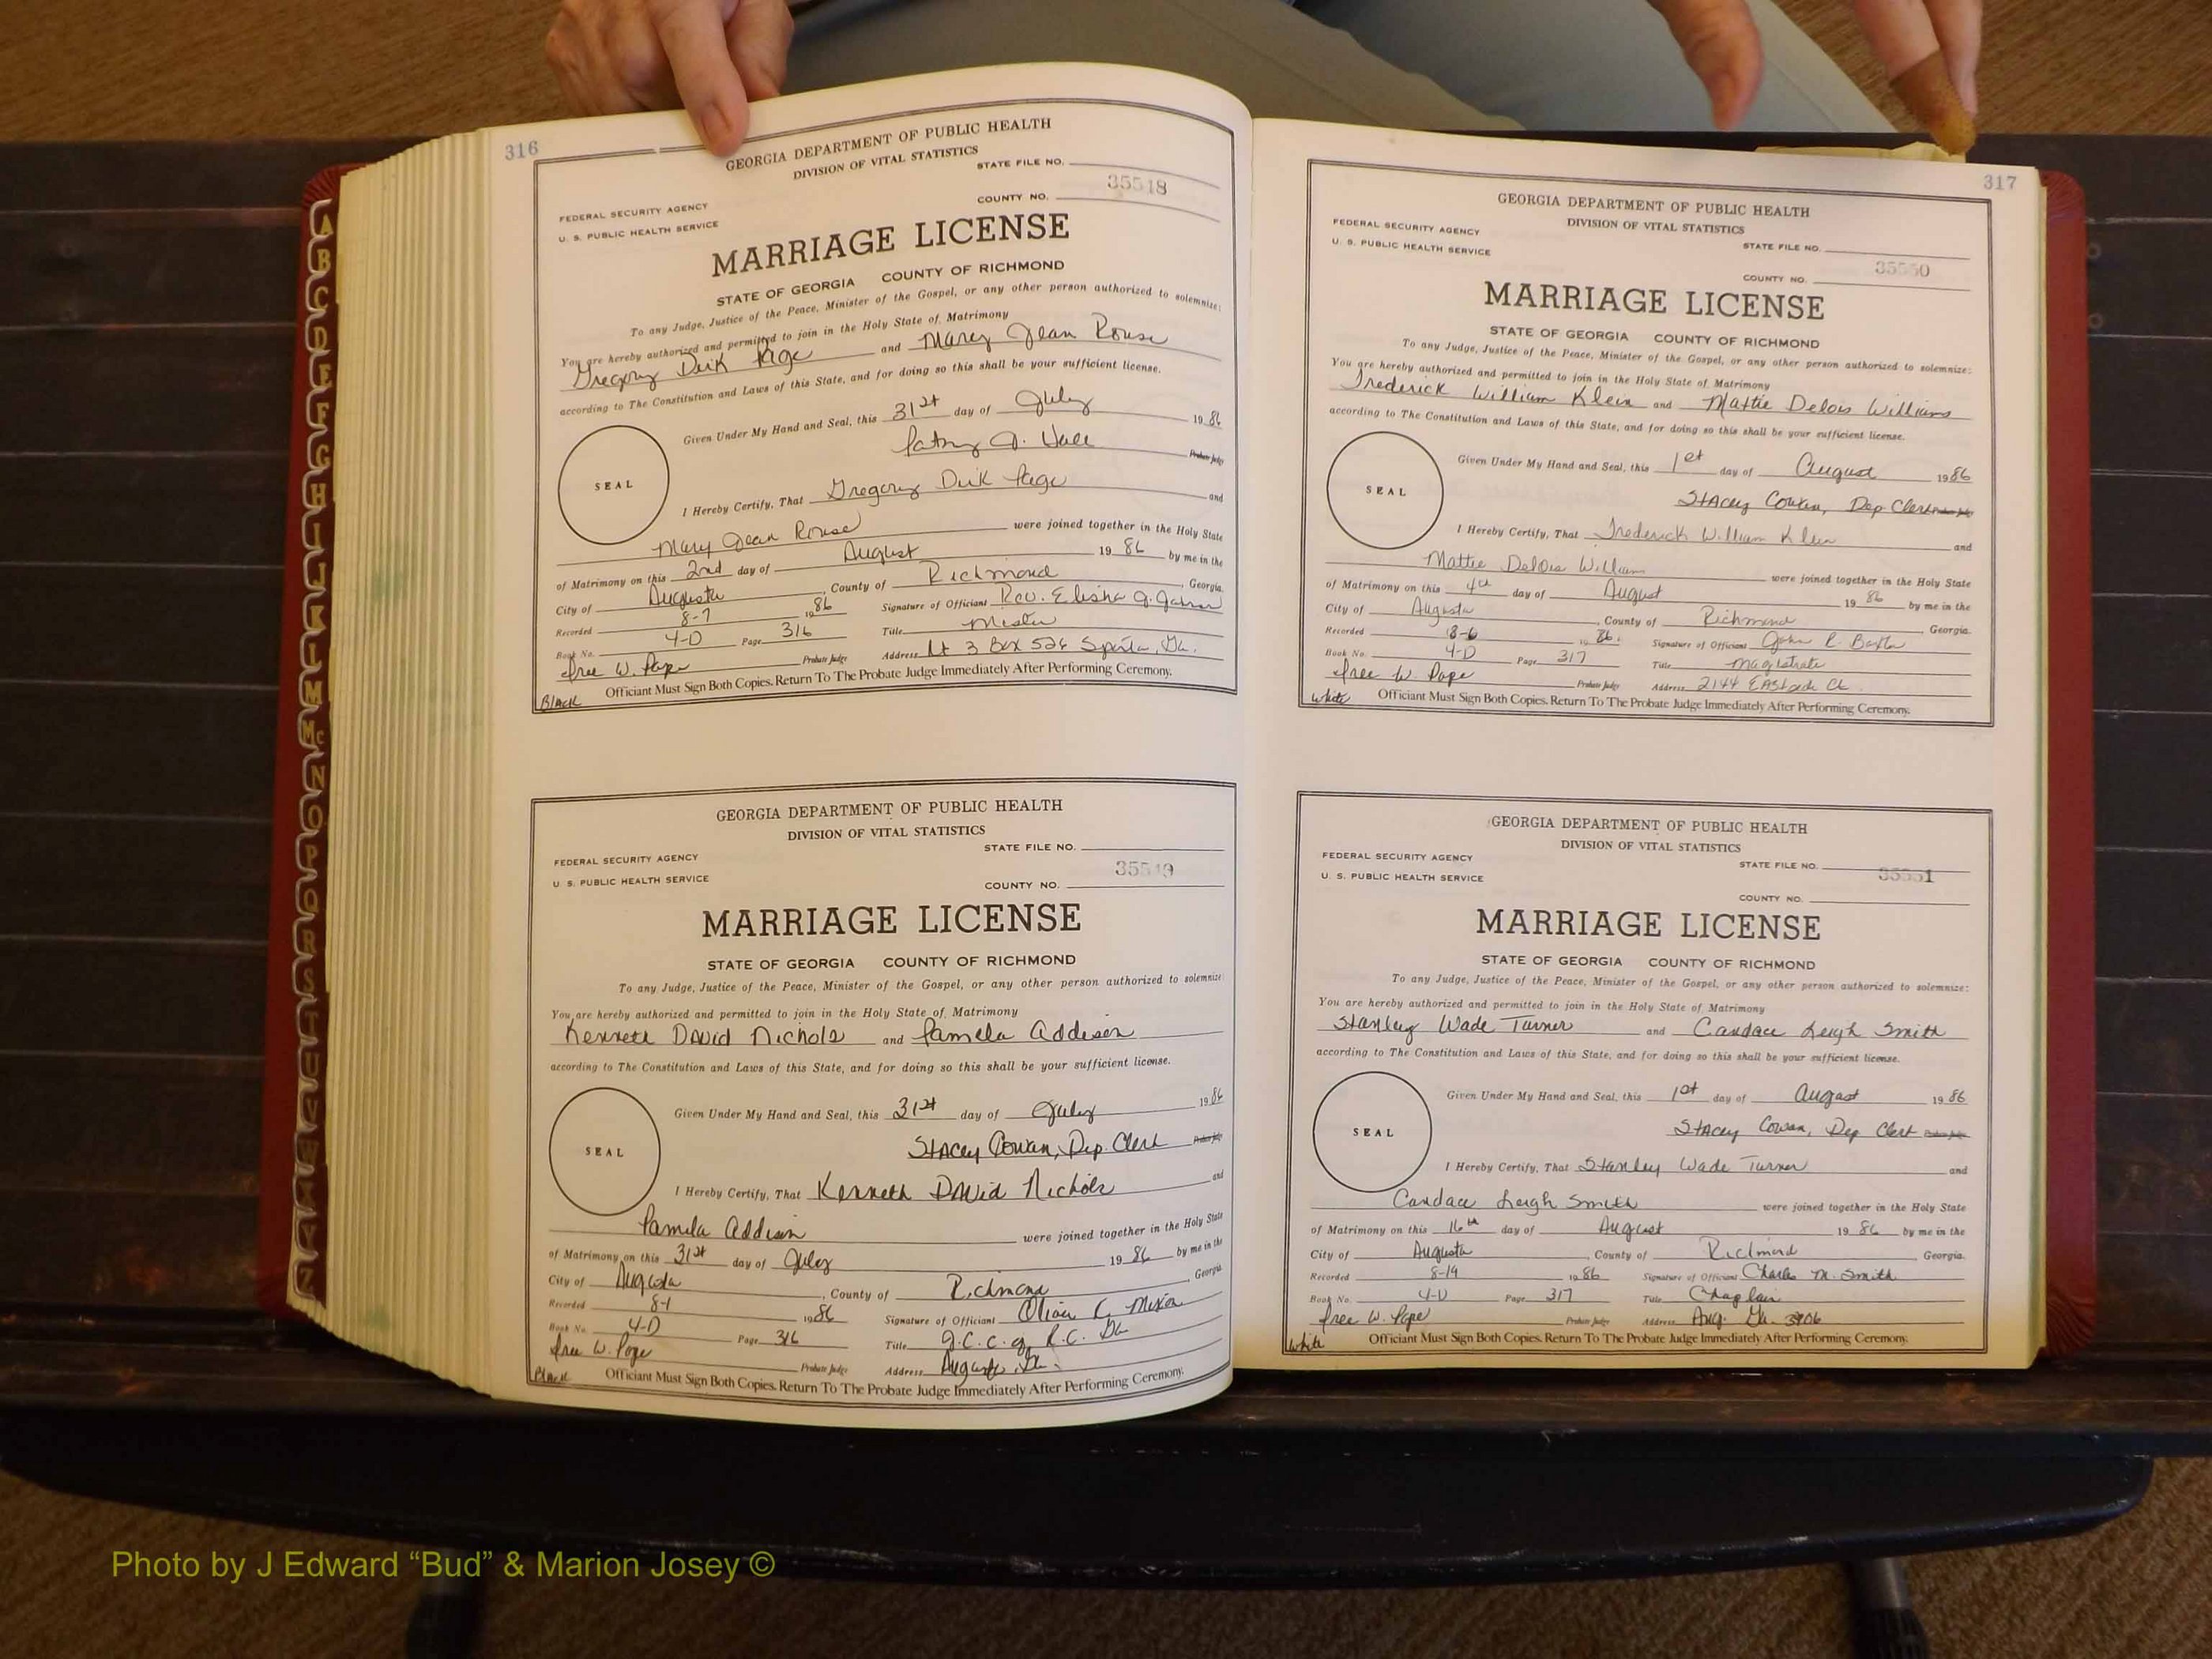 316
GEORGIA DEPARTMENT OF PUBLIC HEALTH
DIVISION OF VITAL STATISTICS
STATE FILE NO.
35518
FEDERAL SECURITY AGENCY
COUNTY NO.
U. S. PUBLIC HEALTH SERVICE
MARRIAGE LICENSE
STATE OF GEORGIA COUNTY OF RICHMOND
To any Judge, Justice of the Peace, Minister of the Gospel, or any other person authorized to solemnize:
You are hereby authorized and permitted to join in the Holy State of Matrimony
Gregory Dirk Page and Mary Jean Rouse
according to The Constitution and Laws of this State, and for doing so this shall be your sufficient license.
Given Under My Hand and Seal, this 31st day of July 1986
Probate Judge
SEAL
I Hereby Certify, That Gregory Dirk Page and
Mary Jean Rouse were joined together in the Holy State
of Matrimony on this 2nd day of August 1986 by me in the
City of Augusta, County of Richmond, Georgia.
Recorded 8-7 1986 Signature of Officiant Rev. Elisha
Book No. 4-D Page 316 Title
W. Pope Probate Judge Address 3 Box 526 Sparta, Ga.
Black Officiant Must Sign Both Copies. Return To The Probate Judge Immediately After Performing Ceremony.
GEORGIA DEPARTMENT OF PUBLIC HEALTH
DIVISION OF VITAL STATISTICS
STATE FILE NO.
FEDERAL SECURITY AGENCY
35519
U. S. PUBLIC HEALTH SERVICE
COUNTY NO.
MARRIAGE LICENSE
STATE OF GEORGIA COUNTY OF RICHMOND
To any Judge, Justice of the Peace, Minister of the Gospel, or any other person authorized to solemnize:
You are hereby authorized and permitted to join in the Holy State of Matrimony
Kenneth David Nichols and Pamela Addison
according to The Constitution and Laws of this State, and for doing so this shall be your sufficient license.
Given Under My Hand and Seal, this 31st day of July 1986
Stacey Cowan, Dep. Clerk Probate Judge
SEAL
I Hereby Certify, That Kenneth David Nichols and
Pamela Addison were joined together in the Holy State
of Matrimony on this 31st day of July 1986 by me in the
City of Augusta, County of Richmond, Georgia
Recorded 8-1 1986 Signature of Officiant Olivia C. Mixon
Book No. 4-D Page 316 Title J.C.C. of R.C. Ga
W. Pope Probate Judge Address Augusta, Ga.
Black Officiant Must Sign Both Copies. Return To The Probate Judge Immediately After Performing Ceremony.
317
GEORGIA DEPARTMENT OF PUBLIC HEALTH
DIVISION OF VITAL STATISTICS
FEDERAL SECURITY AGENCY
STATE FILE NO.
U. S. PUBLIC HEALTH SERVICE
35550
COUNTY NO.
MARRIAGE LICENSE
STATE OF GEORGIA COUNTY OF RICHMOND
To any Judge, Justice of the Peace, Minister of the Gospel, or any other person authorized to solemnize:
You are hereby authorized and permitted to join in the Holy State of Matrimony
Frederick William Klein and Mattie Delois Williams
according to The Constitution and Laws of this State, and for doing so this shall be your sufficient license.
Given Under My Hand and Seal, this 1st day of August 1986
Stacey Cowan, Dep. Clerk Probate Judge
SEAL
I Hereby Certify, That Frederick William Klein and
Mattie Delois William were joined together in the Holy State
of Matrimony on this 4th day of August 1986 by me in the
City of Augusta, County of Richmond, Georgia.
Recorded 8-6 1986. Signature of Officiant John R. Baxter
Book No. 4-D Page 317 Title Magistrate
W. Pope Probate Judge Address 2144 Eastside Ct.
White Officiant Must Sign Both Copies. Return To The Probate Judge Immediately After Performing Ceremony.
GEORGIA DEPARTMENT OF PUBLIC HEALTH
DIVISION OF VITAL STATISTICS
FEDERAL SECURITY AGENCY
STATE FILE NO.
U. S. PUBLIC HEALTH SERVICE
35551
COUNTY NO.
MARRIAGE LICENSE
STATE OF GEORGIA COUNTY OF RICHMOND
To any Judge, Justice of the Peace, Minister of the Gospel, or any other person authorized to solemnize:
You are hereby authorized and permitted to join in the Holy State of Matrimony
Stanley Wade Turner and Candace Leigh Smith
according to The Constitution and Laws of this State, and for doing so this shall be your sufficient license.
Given Under My Hand and Seal, this 1st day of August 1986
Stacey Cowan, Dep Clerk Probate Judge
SEAL
I Hereby Certify, That Stanley Wade Turner and
Candace Leigh Smith were joined together in the Holy State
of Matrimony on this 16th day of August 1986 by me in the
City of Augusta, County of Richmond, Georgia.
Recorded 8-19 1986 Signature of Officiant Charles M. Smith
Book No. 4-D Page 317 Title Chaplain
W. Pope Probate Judge Address Aug. Ga.
White Officiant Must Sign Both Copies. Return To The Probate Judge Immediately After Performing Ceremony.
A
B
C
D
E
F
G
H
I
J
K
L
M
Mc
N
O
P
Q
R
S
T
U
V
W
Y
Z
Photo by J Edward “Bud” & Marion Josey ©